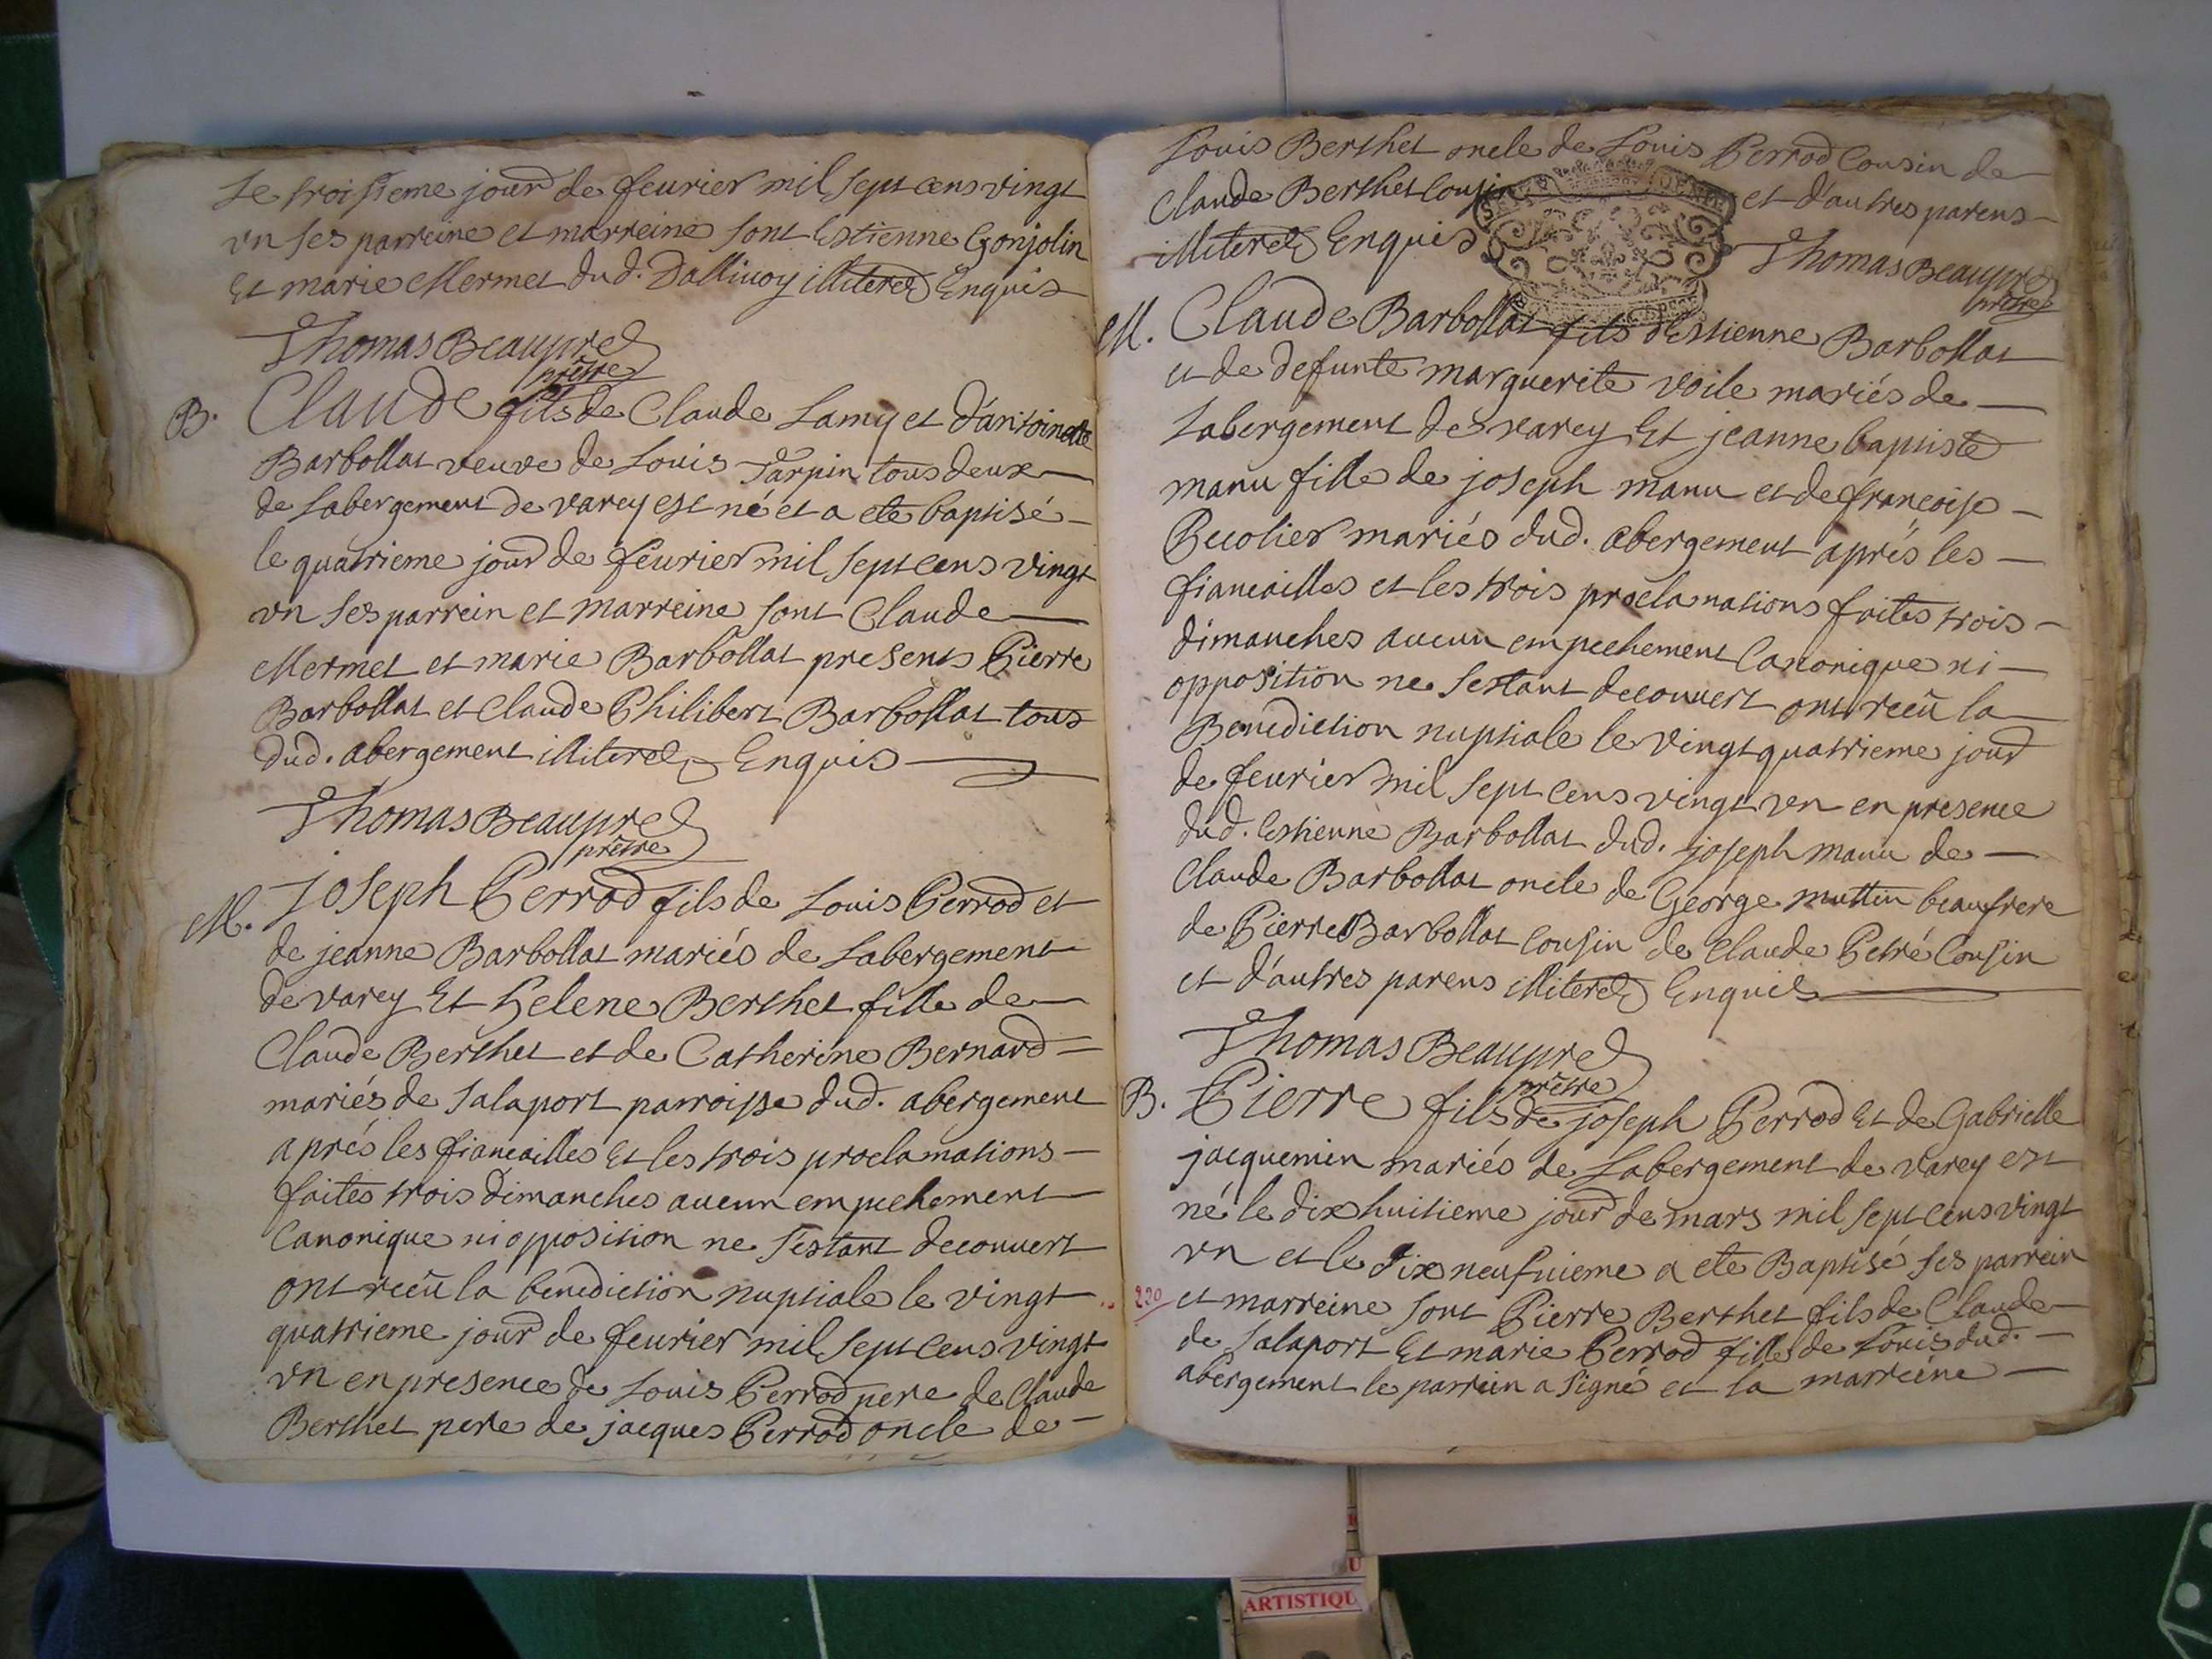 le troisieme jour de feurier mil sept cens vingt
vn ses parreine et marreine sont Estienne Gonjolin
Et marie Mermet dud. Dallivoy illiterez Enquis
Thomas Beaupre
prêtre
B. Claude fils de Claude Lamy et d'antoinette
Barbollat veuve de Louis Tarpin tous deux
de Labergement de varey est né et a ete baptisé
le quatrieme jour de feurier mil sept cens vingt
vn ses parrein et marreine sont Claude
Mermet et marie Barbollat presents Pierre
Barbollat et Claude Philibert Barbollat tous
dud. abergement illiterez Enquis
Thomas Beaupre
prêtre
M. joseph Perrod fils de Louis Perrod et
de jeanne Barbollat mariés de Labergement
de varey Et helene Berthet fille de
Claude Berthet et de Catherine Bernard
mariés de Salaport parroisse dud. abergement
aprés les fiancailles Et les trois proclamations
faites trois dimanches aucun empechement
Canonique ni opposition ne s'estant decouvert
ont recû la benediction nuptiale le vingt
quatrieme jour de feurier mil sept cens vingt
vn en presence de Louis Perrod pere de Claude
Berthet pere de jacques Perrod oncle de
Louis Berthet oncle de Louis Perrod Cousin de
Claude Berthet Cousin et d'autres parens
illiterez Enquis
Thomas Beaupre
prêtre
M. Claude Barbollat fils d'Estienne Barbollat
et de defunte marguerite voile mariés de
Labergement de varey Et jeanne baptiste
manu fille de joseph manu et de francoise
Becolier mariés dud. abergement aprés les
fiancailles et les trois proclamations faites trois
dimanches aucun empechement Canonique ni
opposition ne sestant decouvert ont recû la
Benediction nuptiale le vingt quatrieme jour
de feurier mil sept cens vingt vn en presence
dud. Estienne Barbollat dud. joseph manu de
Claude Barbollat oncle de George muttin beaufrere
de Pierre Barbollat Cousin de Claude Petré Cousin
et d'autres parens illiterez Enquis
Thomas Beaupre
prêtre
B. Pierre fils de joseph Perrod Et de Gabrielle
jacquemin mariés de Labergement de varey est
né le dix huitieme jour de mars mil sept cens vingt
vn et le dix neufuieme a ete Baptisé ses parrein
220 et marreine sont Pierre Berthet fils de Claude
de Salaport Et marie Perrod fille de Louis dud.
abergement le parrein a signé et la marreine
ARTISTIQU